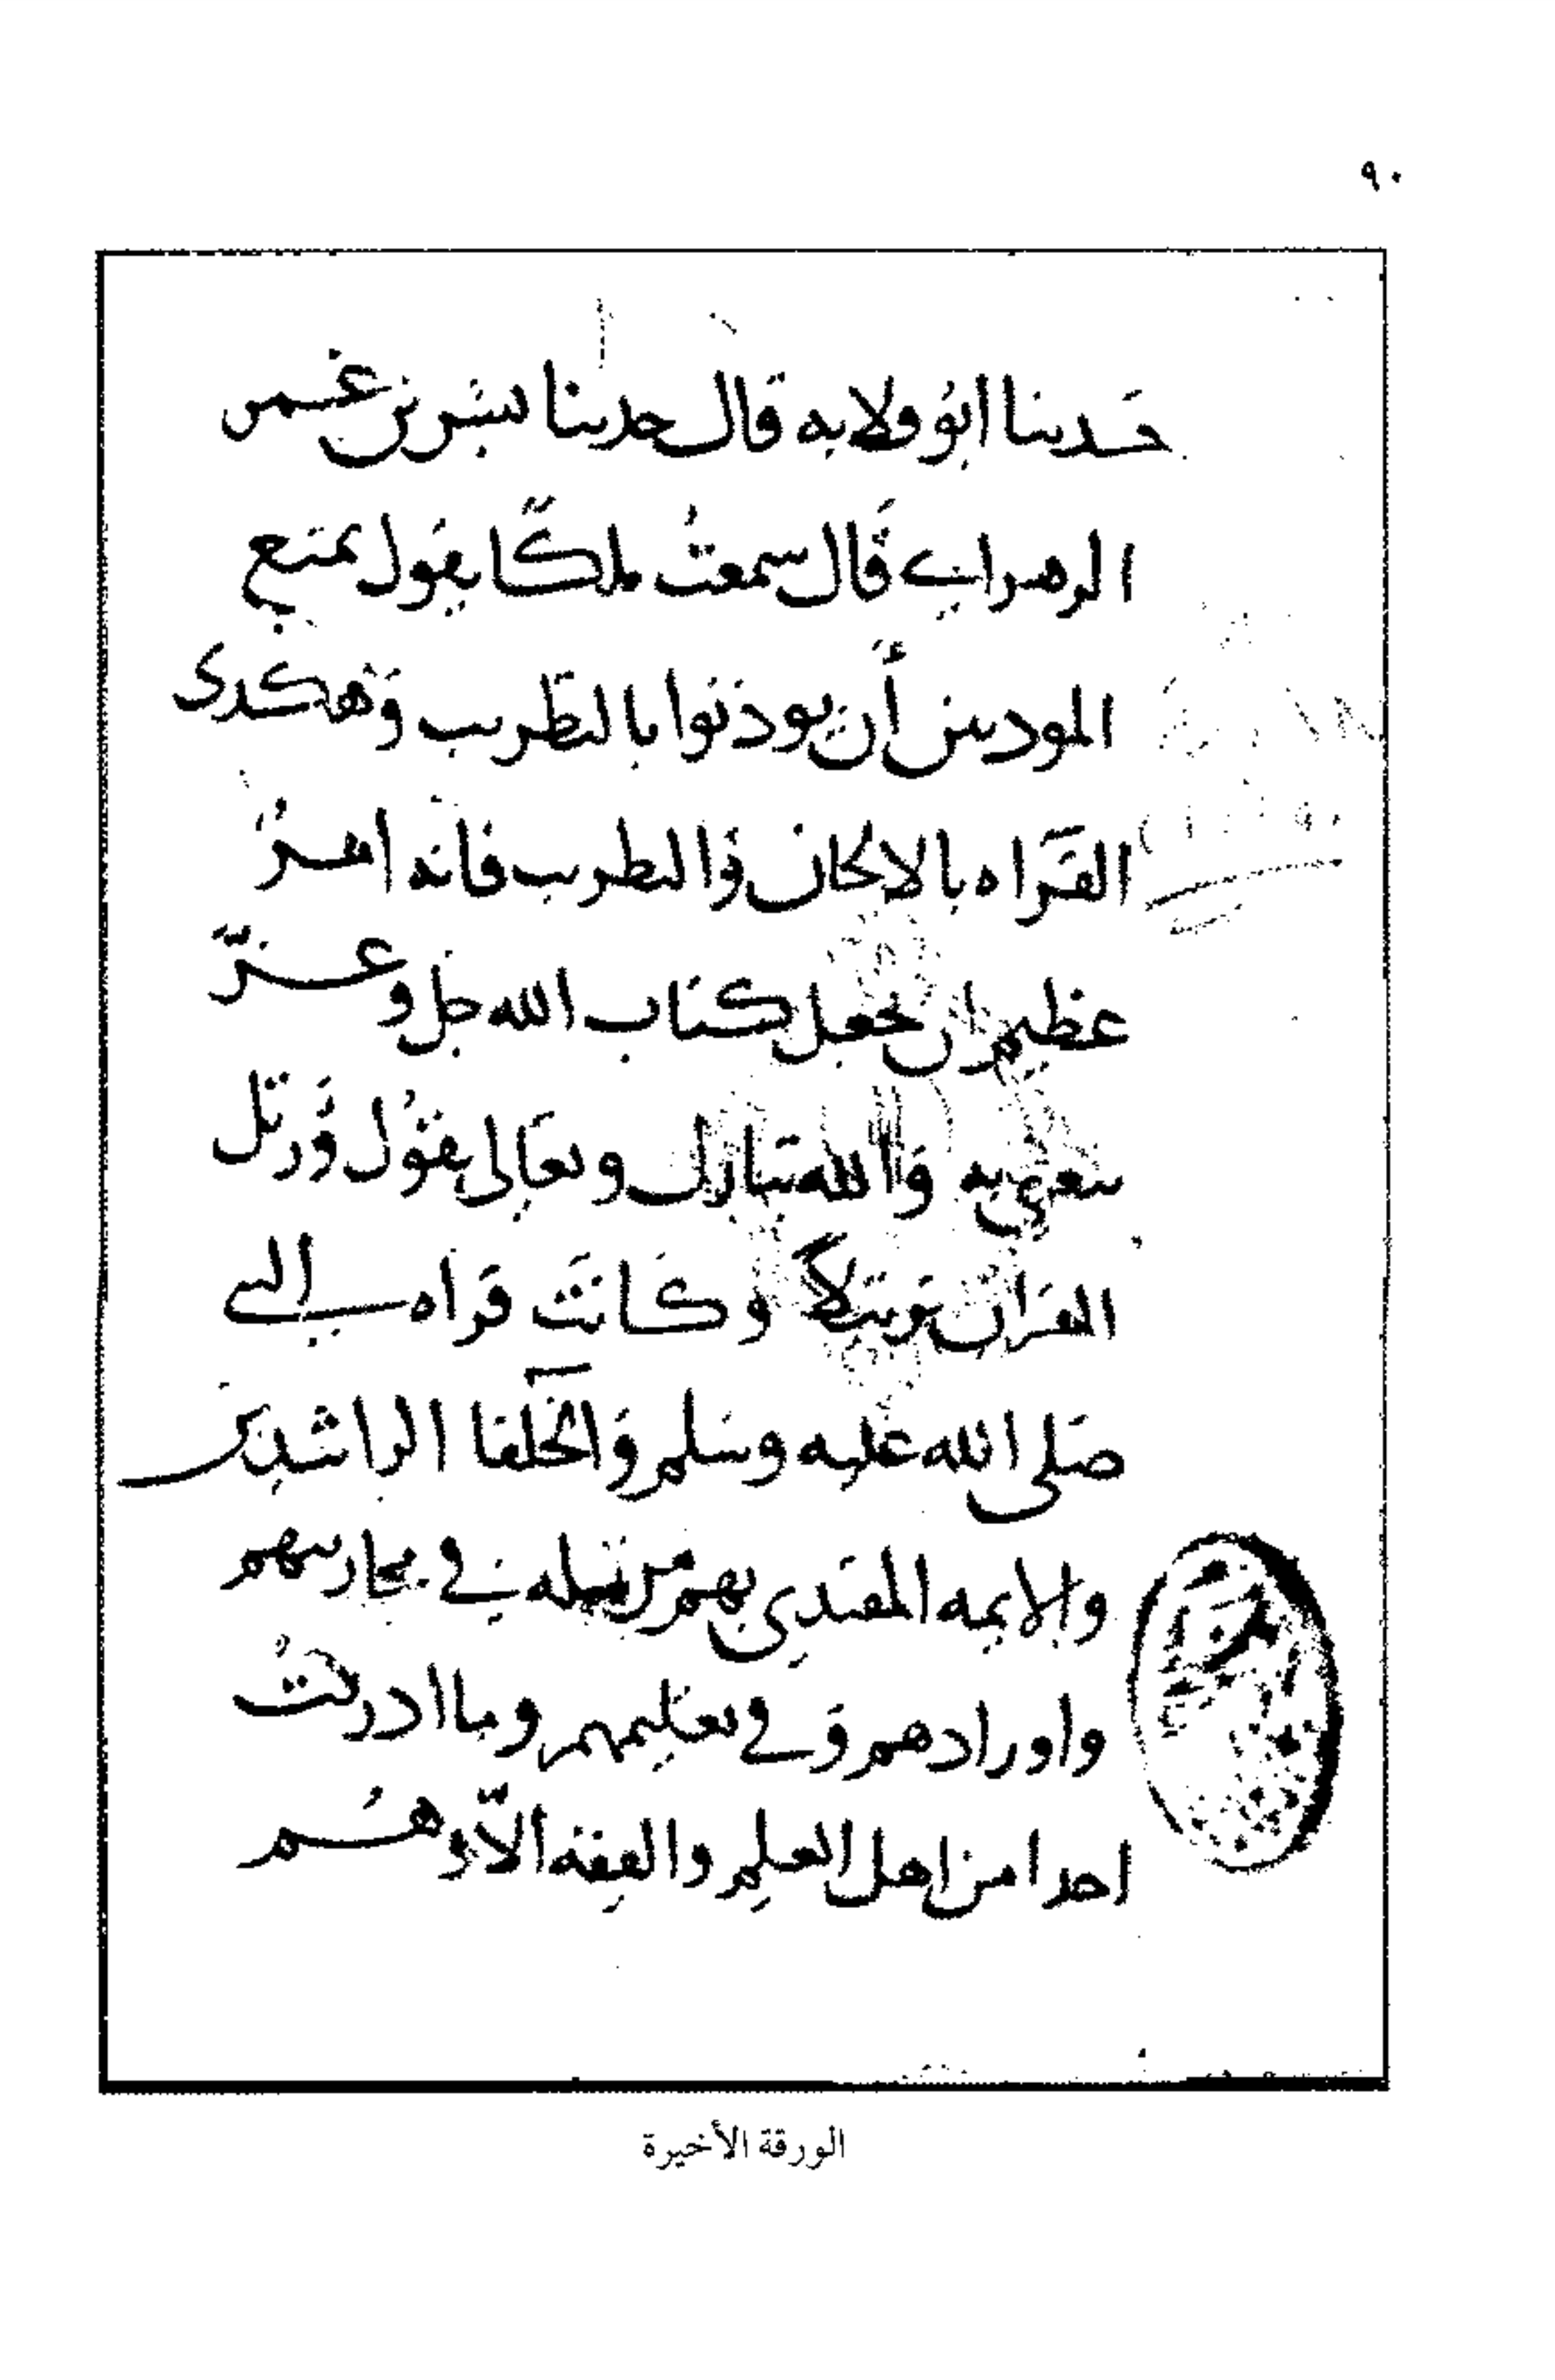 ٩٠
حَدثنا ابوُ قلابه قال حدثنا بشر بن عُمر
الزهراني قَال سمعتُ ملكًا يقول يمنع
المودنين أن يوذنوا بالتطريب وَهكدى
القرَاه بالالحان وَالتطريب فانه امرُ
عظيم ان يجعل كتاب الله جل وعزّ
به وَالله تبارك وتعالى يقوُل وَرتل
القران ترتيلاً وكانَت قراه النبي
صَلى الله عليه وسَلم وَالخلفا الراشدين
والايمه المقتدي بهم من قبله في محاريبهم
واورادهم وَفي تعليمهم وما ادركتُ
احدا من اهل العلم والفقه الاّ وهُم
الورقة الأخيرة